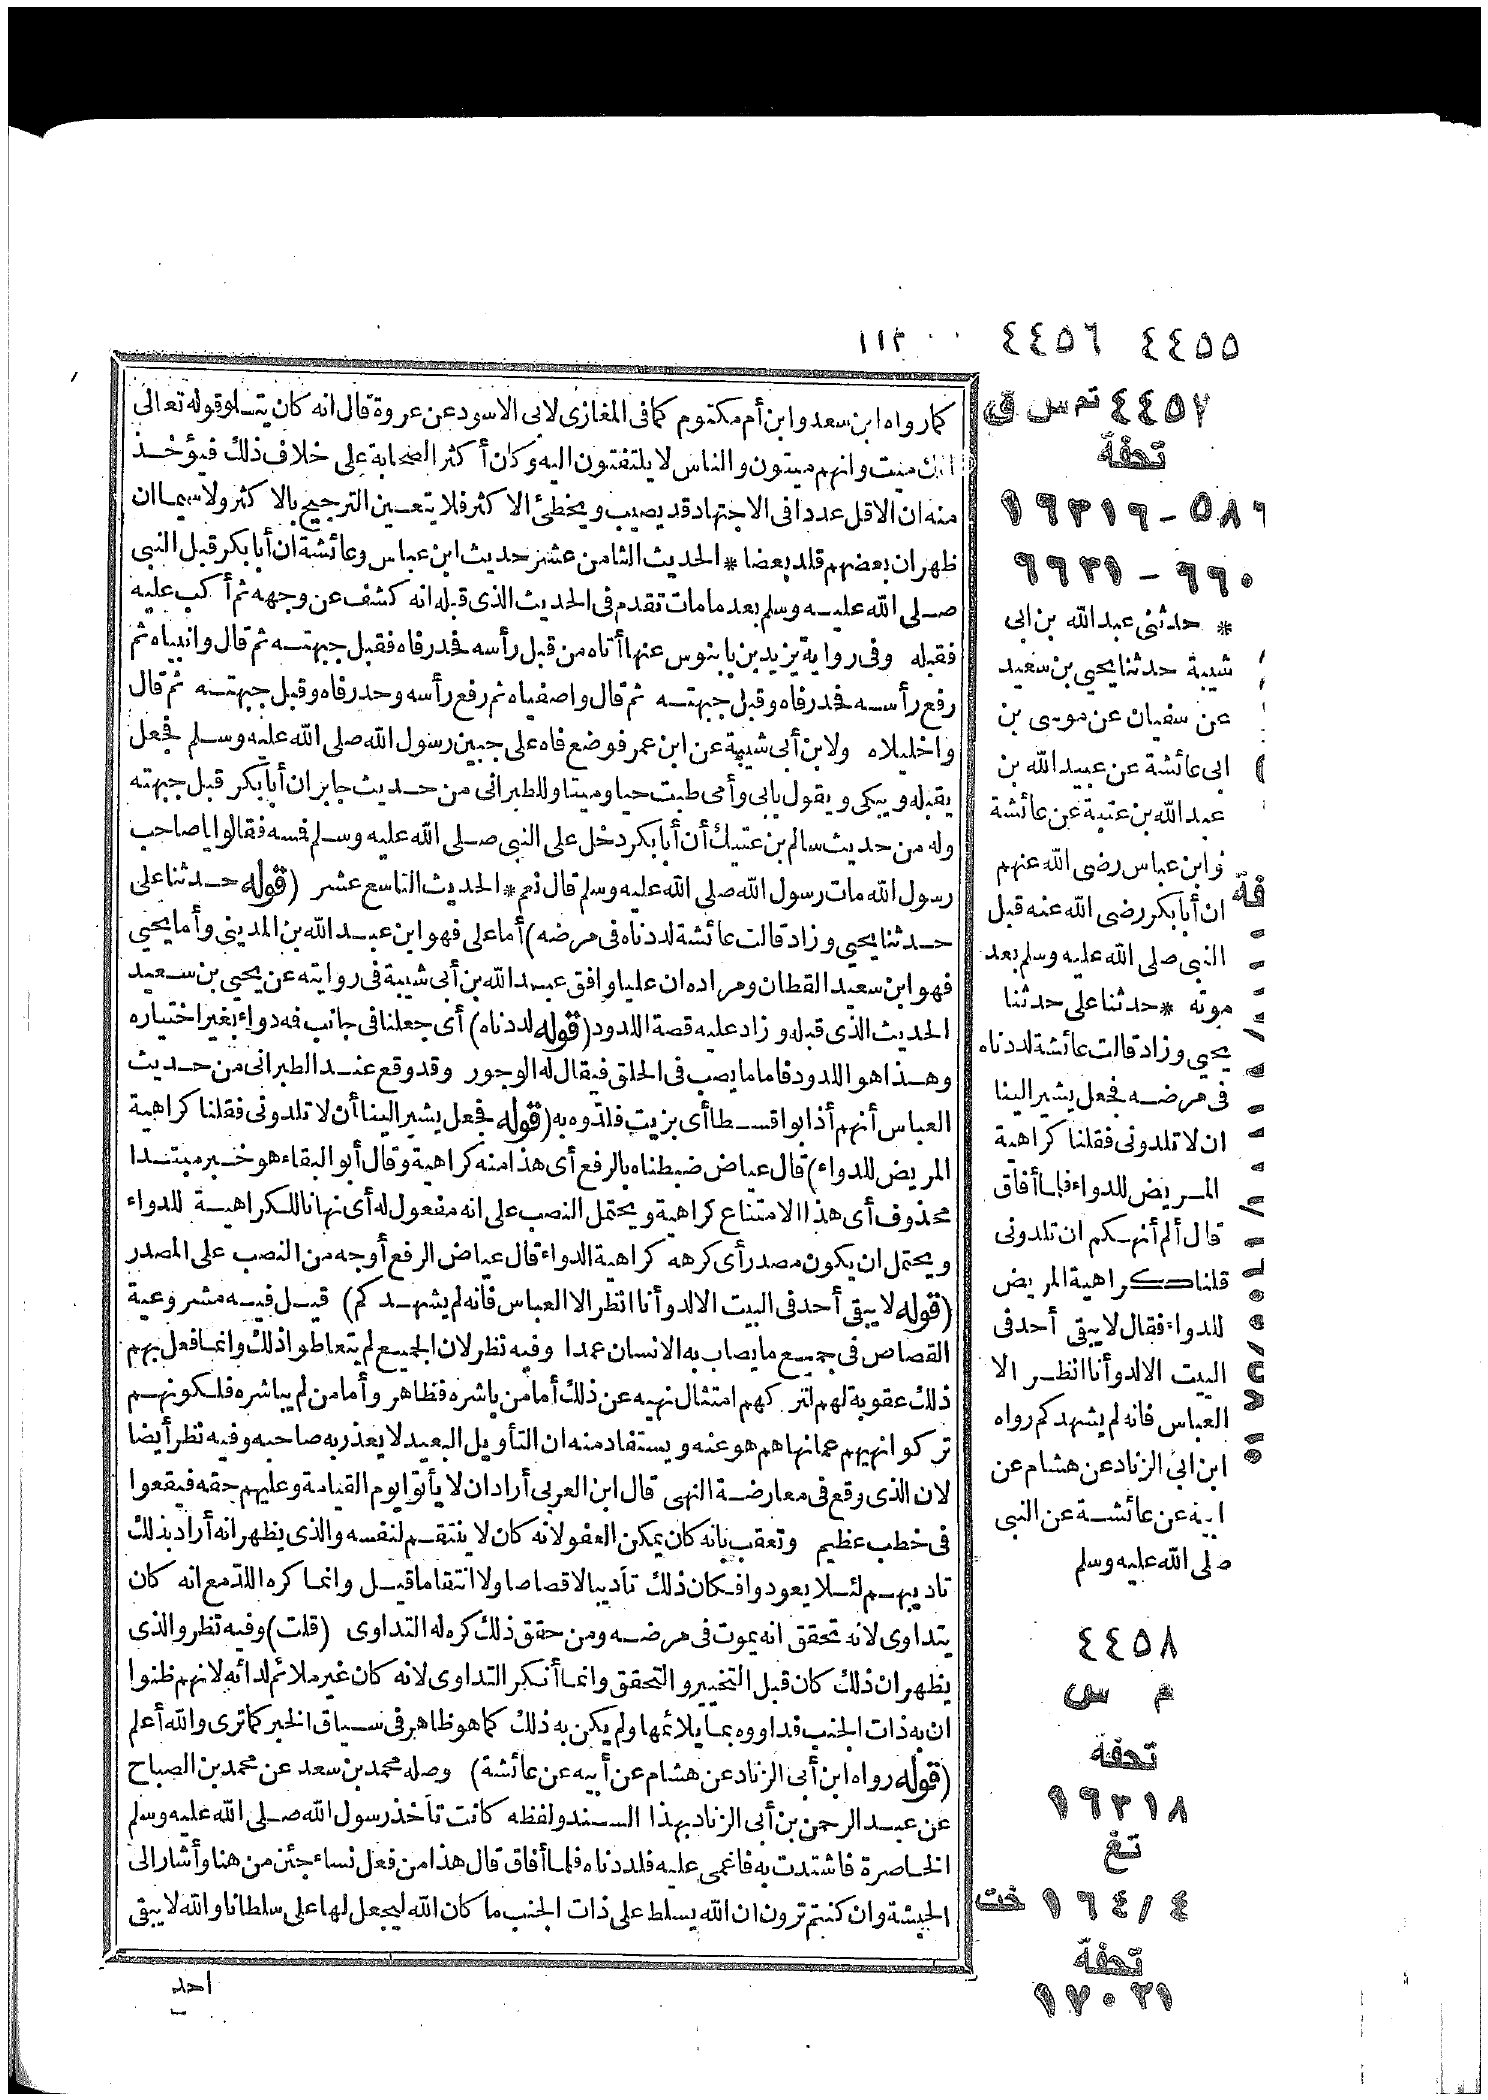 ١١٢٠٠
كما رواه ابن سعد وابن أم مكتوم كما فى المغازى لابى الاسود عن عروة قال انه كان يتلو قوله تعالى
انك ميت وانهم ميتون والناس لا يلتفتون اليه وكان أكثر الصحابة على خلاف ذلك فيؤخذ
منه ان الاقل عددا فى الاجتهاد قد يصيب ويخطئ الاكثر فلا يتعين الترجيح بالاكثر ولا سيما ان
ظهر ان بعضهم قلد بعضا * الحديث الثامن عشر حديث ابن عباس وعائشة ان أبا بكر قبل النبى
صلى الله عليه وسلم بعد ما مات تقدم فى الحديث الذى قبله انه كشف عن وجهه ثم أكب عليه
فقبله وفى رواية يزيد بن بابنوس عنها أتاه من قبل رأسه فحدر فاه فقبل جبهته ثم قال وانبياه ثم
رفع رأسه فحدر فاه وقبل جبهته ثم قال واصفياه ثم رفع رأسه وحدر فاه وقبل جبهته ثم قال
واخليلاه ولابن أبى شيبة عن ابن عمر فوضع فاه على جبين رسول الله صلى الله عليه وسلم فجعل
يقبله ويبكى ويقول بابى وأمى طبت حيا وميتا وللطبرانى من حديث جابر ان أبا بكر قبل جبهته
وله من حديث سالم بن عتيك أن أبا بكر دخل على النبى صلى الله عليه وسلم فسه فقالوا يا صاحب
رسول الله مات رسول الله صلى الله عليه وسلم قال نعم * الحديث التاسع عشر (قوله حدثنا على
حدثنا يحيى وزاد قالت عائشة لددناه فى مرضه) أما على فهو ابن عبد الله بن المدينى وأما يحيى
فهو ابن سعيد القطان ومراده ان عليا وافق عبد الله بن أبى شيبة فى روايته عن يحيى بن سعيد
الحديث الذى قبله وزاد عليه قصة اللدود (قوله لددناه) أى جعلنا فى جانب فه دواء بغير اختياره
وهذا هو اللدود فاما ما يصب فى الحلق فيقال له الوجور وقد وقع عند الطبرانى من حديث
العباس أنهم أذابوا قسطا أى بزيت فلدوه به (قوله فجعل يشير الينا أن لا تلدونى فقلنا كراهية
المريض للدواء) قال عياض ضبطناه بالرفع أى هذا منه كراهية وقال أبو البقاء هو خبر مبتدا
محذوف أى هذا الامتناع كراهية ويحتمل النصب على انه مفعول له أى نهانا للكراهية للدواء
ويحتمل ان يكون مصدر أى كرهه كراهية الدواء قال عياض الرفع أوجه من النصب على المصدر
(قوله لا يبقى أحد فى البيت الا لد وأنا انظر الا العباس فانه لم يشهدكم) قيل فيه مشروعية
القصاص فى جميع ما يصاب به الانسان عمدا وفيه نظر لان الجميع لم يتعاطوا ذلك وانما فعل بهم
ذلك عقوبة لهم لتركهم امتثال نهيه عن ذلك أما من باشره فظاهر وأما من لم يباشره فلكونهم
تركوا نهيهم عما نهاهم هو عنه ويستفاد منه ان التأويل البعيد لا يعذر به صاحبه وفيه نظر أيضا
لان الذى وقع فى معارضة النهى قال ابن العربى أراد ان لا يأتوا يوم القيامة وعليهم حقه فيقعوا
فى خطب عظيم وتعقب بانه كان يمكن العفو لانه كان لا ينتقم لنفسه والذى يظهر انه أراد بذلك
تاديبهم لئلا يعودوا فكان ذلك تأديبا لا قصاصا ولا انتقاما قيل وانما كره اللد مع انه كان
يتداوى لانه تحقق انه يموت فى مرضه ومن حقق ذلك كره له التداوى (قلت) وفيه نظر والذى
يظهر ان ذلك كان قبل التخيير والتحقق وانما أنكر التداوى لانه كان غير ملائم لدائه لانهم ظنوا
ان به ذات الجنب فداووه بما يلائمها ولم يكن به ذلك كما هو ظاهر فى سياق الخبر كما ترى والله أعلم
(قوله رواه ابن أبى الزناد عن هشام عن أبيه عن عائشة) وصله محمد بن سعد عن محمد بن الصباح
عن عبد الرحمن بن أبى الزناد بهذا السند ولفظه كانت تأخذ رسول الله صلى الله عليه وسلم
الخاصرة فاشتدت به فاغمى عليه فلددناه فلما أفاق قال هذا من فعل نساء جئن من هنا وأشار الى
الحبشة وان كنتم ترون ان الله يسلط على ذات الجنب ما كان الله ليجعل لها على سلطانا والله لا يبقى
احد
٤٤٥٥ ٤٤٥٦
٤٤٥٧ تم س ق
تحفة
٥٨٦ - ١٦٣١٦
٦٦٠ - ٦٦٣١
* حدثنى عبد الله بن ابى
شيبة حدثنا يحيى بن سعيد
عن سفيان عن موسى بن
ابى عائشة عن عبيد الله بن
عبد الله بن عتبة عن عائشة
وابن عباس رضى الله عنهم
ان أبا بكر رضى الله عنه قبل
النبى صلى الله عليه وسلم بعد
موته * حدثنا على حدثنا
يحيى وزاد قالت عائشة لددناه
فى مرضه فجعل يشير الينا
ان لا تلدونى فقلنا كراهية
المريض للدواء فلما أفاق
قال ألم أنهكم ان تلدونى
قلنا كراهية المريض
للدواء فقال لا يبقى أحد فى
البيت الا لد وأنا انظر الا
العباس فانه لم يشهدكم رواه
ابن ابى الزناد عن هشام عن
ابيه عن عائشة عن النبى
صلى الله عليه وسلم
٤٤٥٨
م س
تحفة
١٦٣١٨
تغ
١٦٤/٤ خت
تحفة
١٧٠٢١